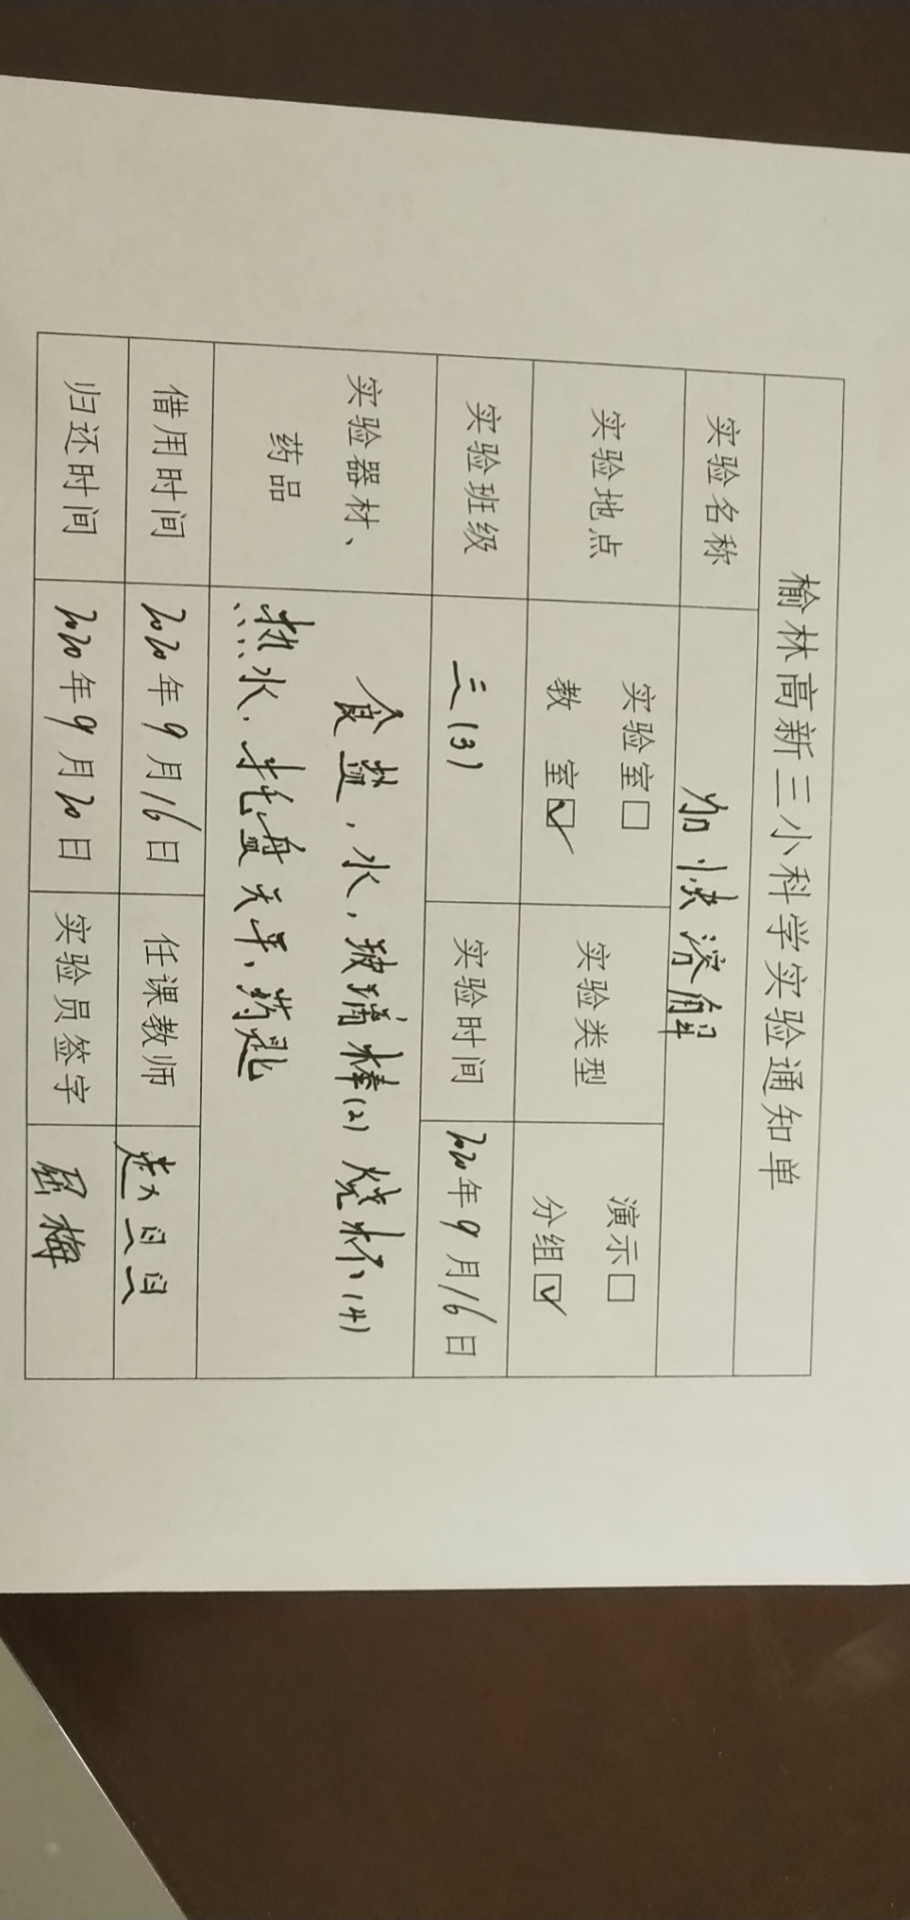 榆林高新三小科学实验通知单
实验名称 加快溶解
实验地点 实验室□ 教 室☑ 实验类型 演示□ 分组☑
实验班级 三(3) 实验时间 2020年9月16日
实验器材、药品 食盐,水,玻璃棒(2) 烧杯(4)
热水、托盘天平、药匙
借用时间 2020年9月16日 任课教师 赵旦旦
归还时间 2020年9月20日 实验员签字 屈梅